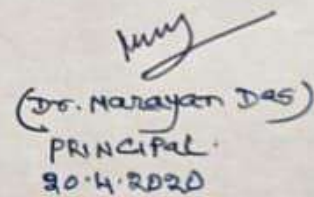 (Dr. Narayan Das)
PRINCIPAL.
20.4.2020